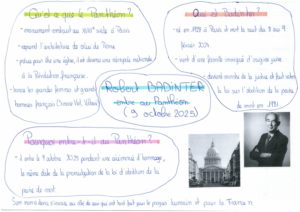 Qu'est-ce que le Panthéon ?
- monument construit au XVIIIe siècle à Paris
- reprend l'architecture de celui de Rome
- prévu pour être une église, il est devenu une nécropole nationale
à la Révolution française.
- honore les grandes femmes et grands
hommes français (Simone Veil, Voltaire)
Qui est Badinter ?
- né en 1928 à Paris et mort le neuf
février 2024.
- vient d'une famille immigré d'origine juive
- devient ministre de la justice et fait voter
la loi sur l'abolition de la peine
de mort en 1981.
Robert BADINTER
entre au Panthéon
(9 octobre 2025)
Pourquoi entre-t-il au Panthéon ?
- il entre le 9 octobre 2025 pendant une cérémonie d'hommage,
la même date de la promulgation de la loi d'abolition de la
peine de mort.
Son nom à côté de ceux qui ont tant fait pour le progrès humain et pour la France